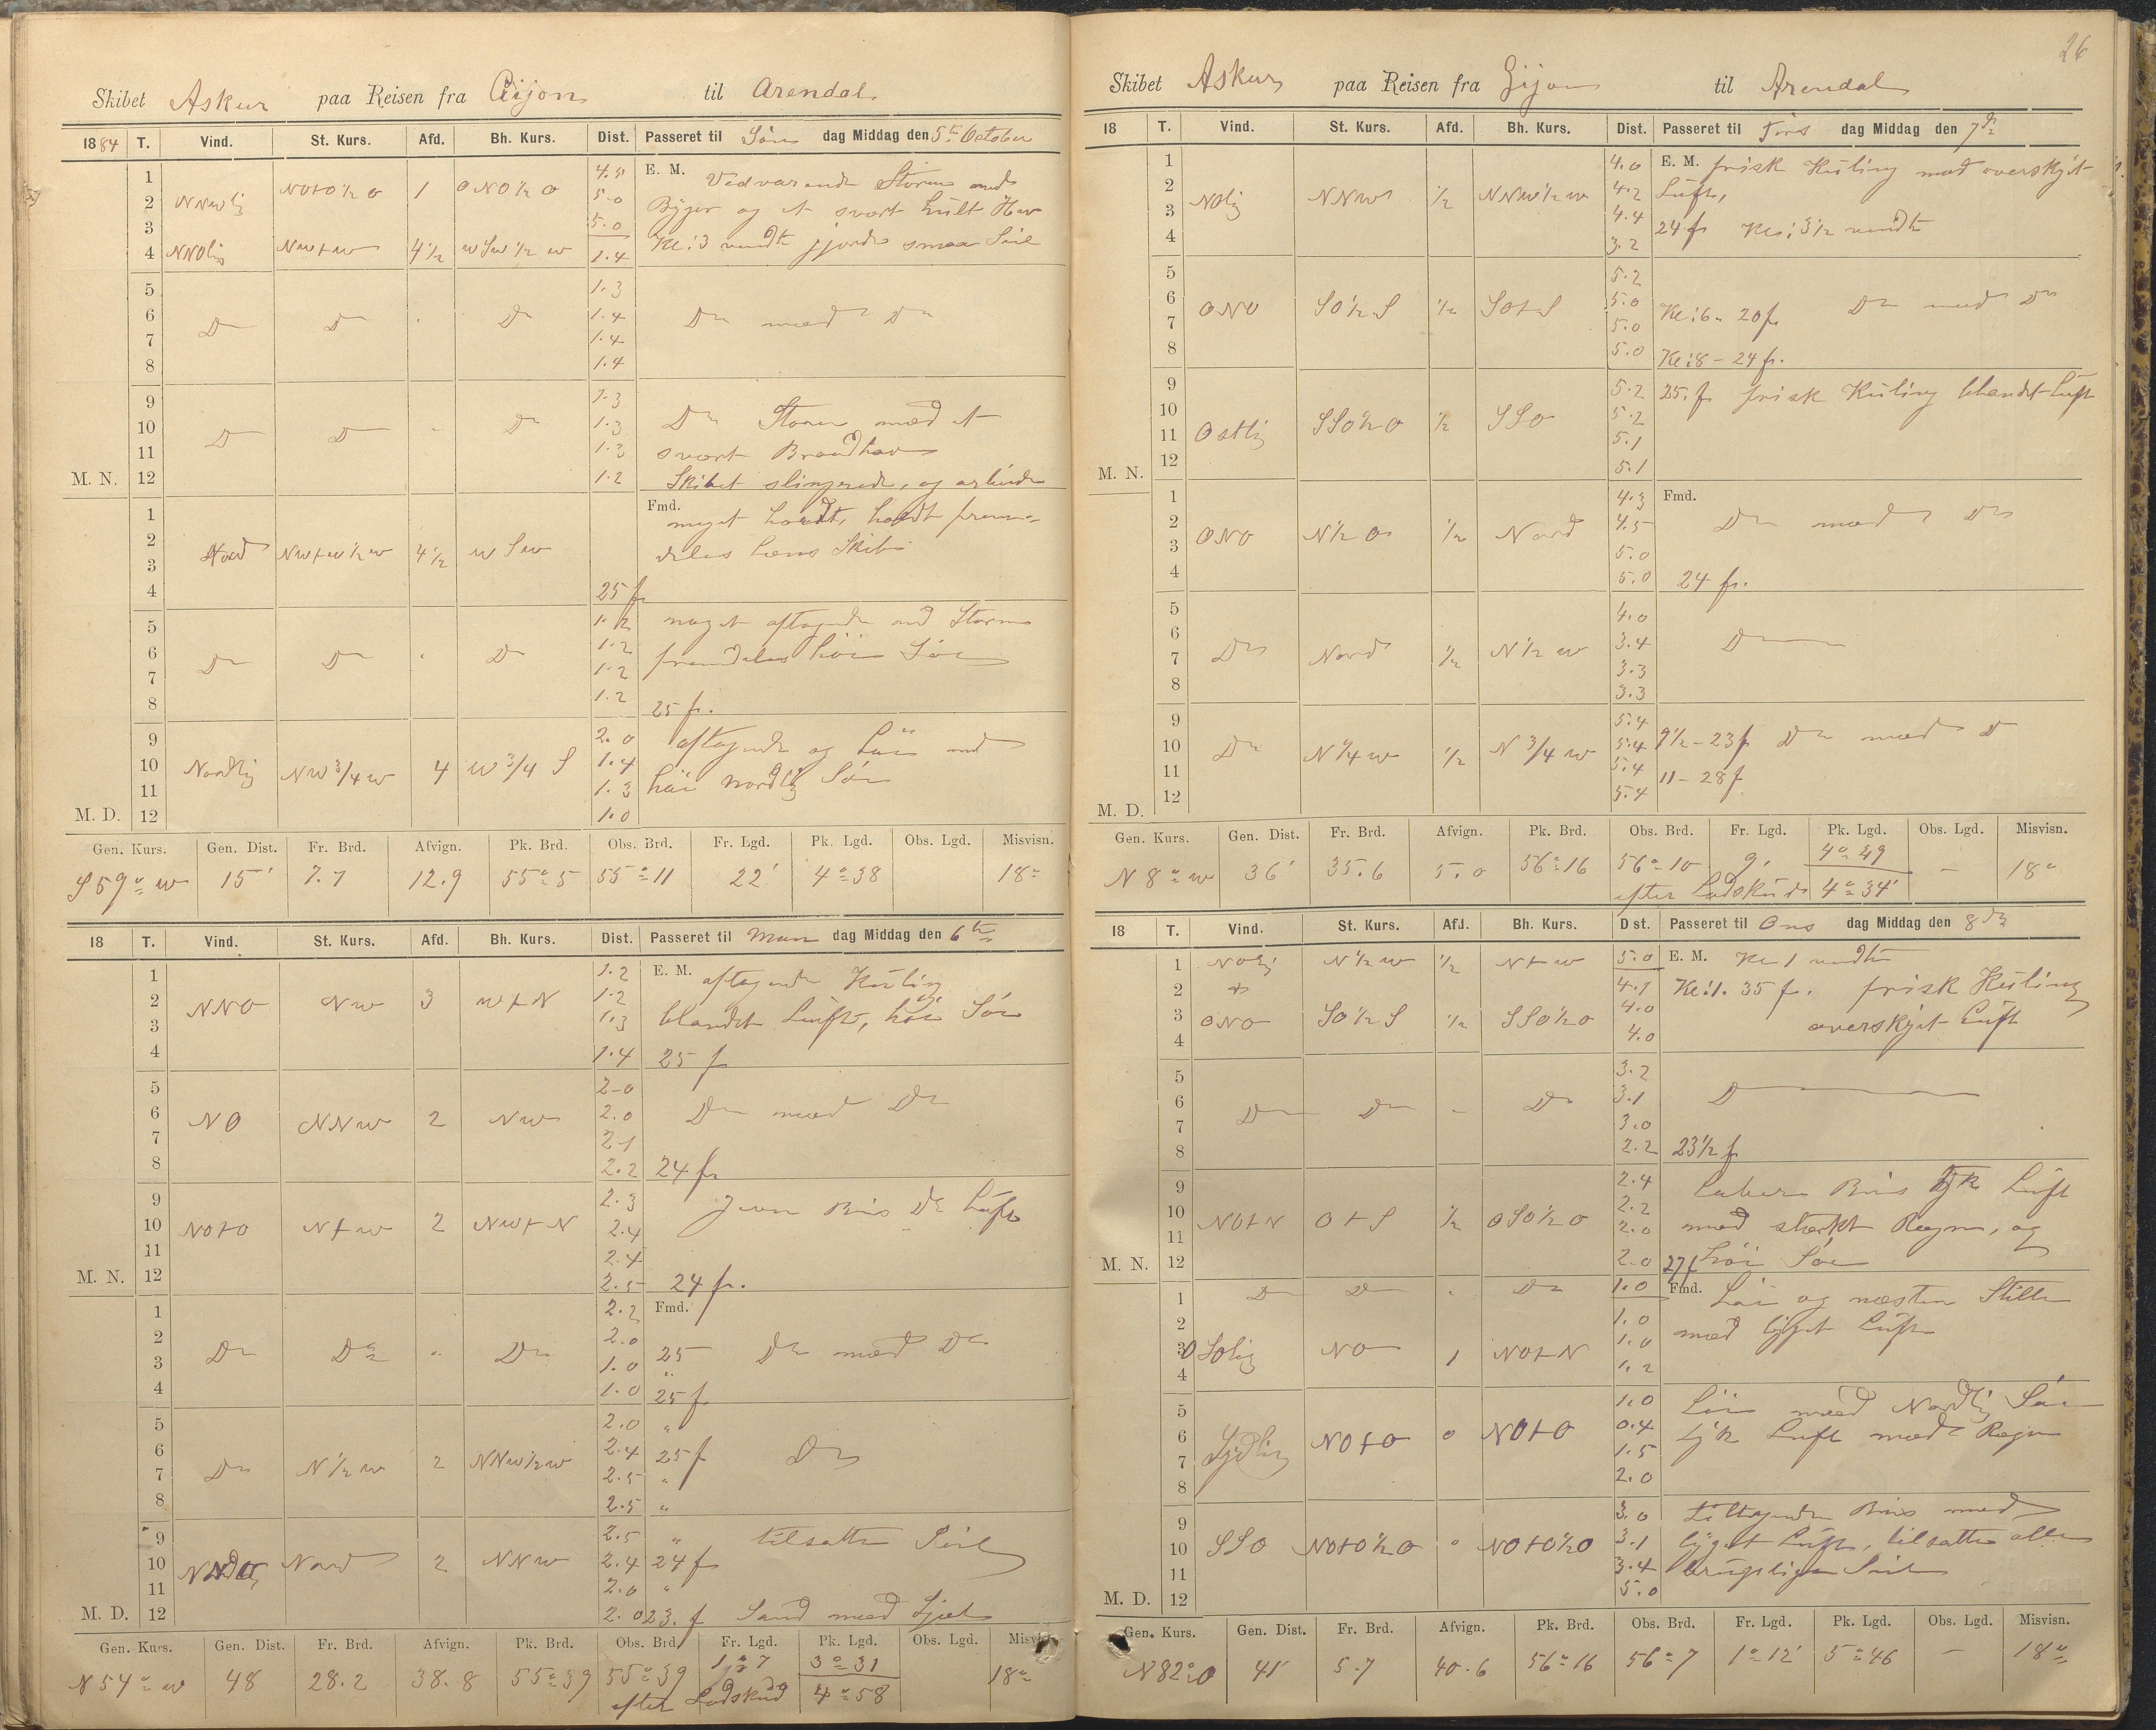 Skibet Askur paa Reisen fra Gijon til Arendal
1884 T. Vind. St. Kurs. Afd. Bh. Kurs. Dist. Passeret til Søn dag Middag den 5te October
1 4.5 E. M. Vedvarende Storm med
2 NNWlig NOtO½O 1 ONO½O 5.0 Byger og et svært hult Hav
3 5.0
4 NNOlig NWtW 4½ WSW½W 1.4 Kl: 3 vendte gjorde smaa Seil
5 1.3
6 Do Do " Do 1.4 Do med Do
7 1.4
8 1.4
9 1.3
10 Do Do " Do 1.3 Do Storm med et
11 1.3 svært Braadhav
M. N. 12 1.2 Skibet slingrede, og arbeide
1 Fmd. meget haardt, holdt frem-
2 Nord NWtW½W 4½ WSW deles læns Skib
3
4 25 f
5 1.2 noget aftagende med Storm
6 Do Do " Do 1.2 fremdeles høi Søe
7 1.2
8 1.2 25 f.
9 2.0 aftagende og Løi med
10 Nordlig NW¾W 4 W¾S 1.4
11 1.3 høi nordlig Søe
M. D. 12 1.0
Gen. Kurs. Gen. Dist. Fr. Brd. Afvign. Pk. Brd. Obs. Brd. Fr. Lgd. Pk. Lgd. Obs. Lgd. Misvisn.
S 59° W 15' 7.7 12.9 55° 5 55° 11 22' 4° 38 18°
18 T. Vind. St. Kurs. Afd. Bh. Kurs. Dist. Passeret til Man dag Middag den 6te
1 1.2 E. M. aftagende Kuling
2 NNO NW 3 WtN 1.2 blandet Luft, høi Søe
3 1.3
4 1.4 25 f
5 2.0
6 NO NNW 2 NW 2.0 Do med Do
7 2.1
8 2.2 24 f
9 2.3 Jevn Bris Do Luft
10 NOtO NtW 2 NWtN 2.4
11 2.4
M. N. 12 2.5 24 f.
1 2.2 Fmd.
2 Do Do " Do 2.0 25 Do med Do
3 1.0 "
4 1.0 25 f
5 2.0 "
6 Do N½W 2 NNW½W 2.4 25 f Do
7 2.5 "
8 2.5 "
9 2.5 " tilsatte Seil
10 Nord 2 NNW 2.4 24 f
11 2.0 "
M. D. 12 2.0 23. f Sand med
Gen. Kurs. Gen. Dist. Fr. Brd. Afvign. Pk. Brd. Obs. Brd. Fr. Lgd. Pk. Lgd. Obs. Lgd. Misvisn.
N 54° W 48 28.2 38.8 55° 39 55° 39 1° 7 3° 31 18°
efter Lodskud 4° 58
26
Skibet Askur paa Reisen fra Gijon til Arendal
18 T. Vind. St. Kurs. Afd. Bh. Kurs. Dist. Passeret til Tirs dag Middag den 7de
1 4.0 E. M. frisk Kuling med overskyet
2 NOlig NNW ½ NNW½W 4.2 Luft,
3 4.4 24 f Kl: 3½ vendte
4 3.2
5 5.2
6 ONO SO½S ½ SOtS 5.0 Kl: 6 - 20 f Do med Do
7 5.0
8 5.0 Kl: 8 - 24 f.
9 5.2 25. f frisk Kuling blandet Luft
10 5.2
11 Ostlig SSO½O ½ SSO 5.1
M. N. 12 5.1
1 4.3 Fmd.
2 ONO N½O ½ Nord 4.5 Do med Do
3 5.0
4 5.0 24 f.
5 4.0
6 Do Nord ½ N½W 3.4 Do
7 3.3
8 3.3
9 5.4
10 Do N¼W ½ N¾W 5.4 9½ - 23 f Do med D
11 5.4 11 - 28 f
M. D. 12 5.4
Gen. Kurs. Gen. Dist. Fr. Brd. Afvign. Pk. Brd. Obs. Brd. Fr. Lgd. Pk. Lgd. Obs. Lgd. Misvisn.
N 8° W 36' 35.6 5.0 56° 16 56° 10 9' 4° 49 — 18°
efter Lodskud 4° 34'
18 T. Vind. St. Kurs. Afd. Bh. Kurs. Dist. Passeret til Ons dag Middag den 8de
1 NOlig N½W ½ NtW 5.0 E. M. Kl 1 vendte
2 4.1 Kl: 1. 35 f. frisk Kuling
3 ONO SO½S ½ SSO½O 4.0 overskyet Luft
4 4.0
5 3.2
6 Do Do " Do 3.1 Do
7 3.0
8 2.2 23½ f
9 2.4 Laber Bris tyk Luft
10 NOtN OtS ½ OSO½O 2.2 med stærkt Regn, og
11 2.0
M. N. 12 2.0 27 f høi Søe
1 Do Do " Do 1.0 Fmd. Løi og næsten Stille
2 1.0 med Luft
3 OSOlig NO 1 NOtN 1.0
4 1.2
5 1.0 Løi med Nordlig Søe
6 Sydlig NOtO 0 NOtO 0.4 tyk Luft med Regn
7 1.5
8 2.0
9 3.0 tiltagende Bris med
10 SSO NOtO½O 0 NOtO½O 3.1 Luft, tilsatte alle
11 3.4 brugelige Seil
M. D. 12 5.0
Gen. Kurs. Gen. Dist. Fr. Brd. Afvign. Pk. Brd. Obs. Brd. Fr. Lgd. Pk. Lgd. Obs. Lgd. Misvisn.
N 82° O 41' 5.7 40.6 56° 16 56° 7 1° 12' 5° 46 — 18°